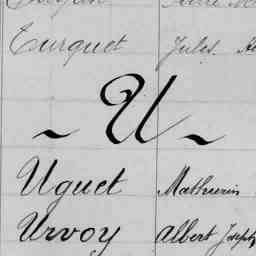 Turquet Jules
~ U ~
Uguet Mathurin
Urvoy Albert Joseph